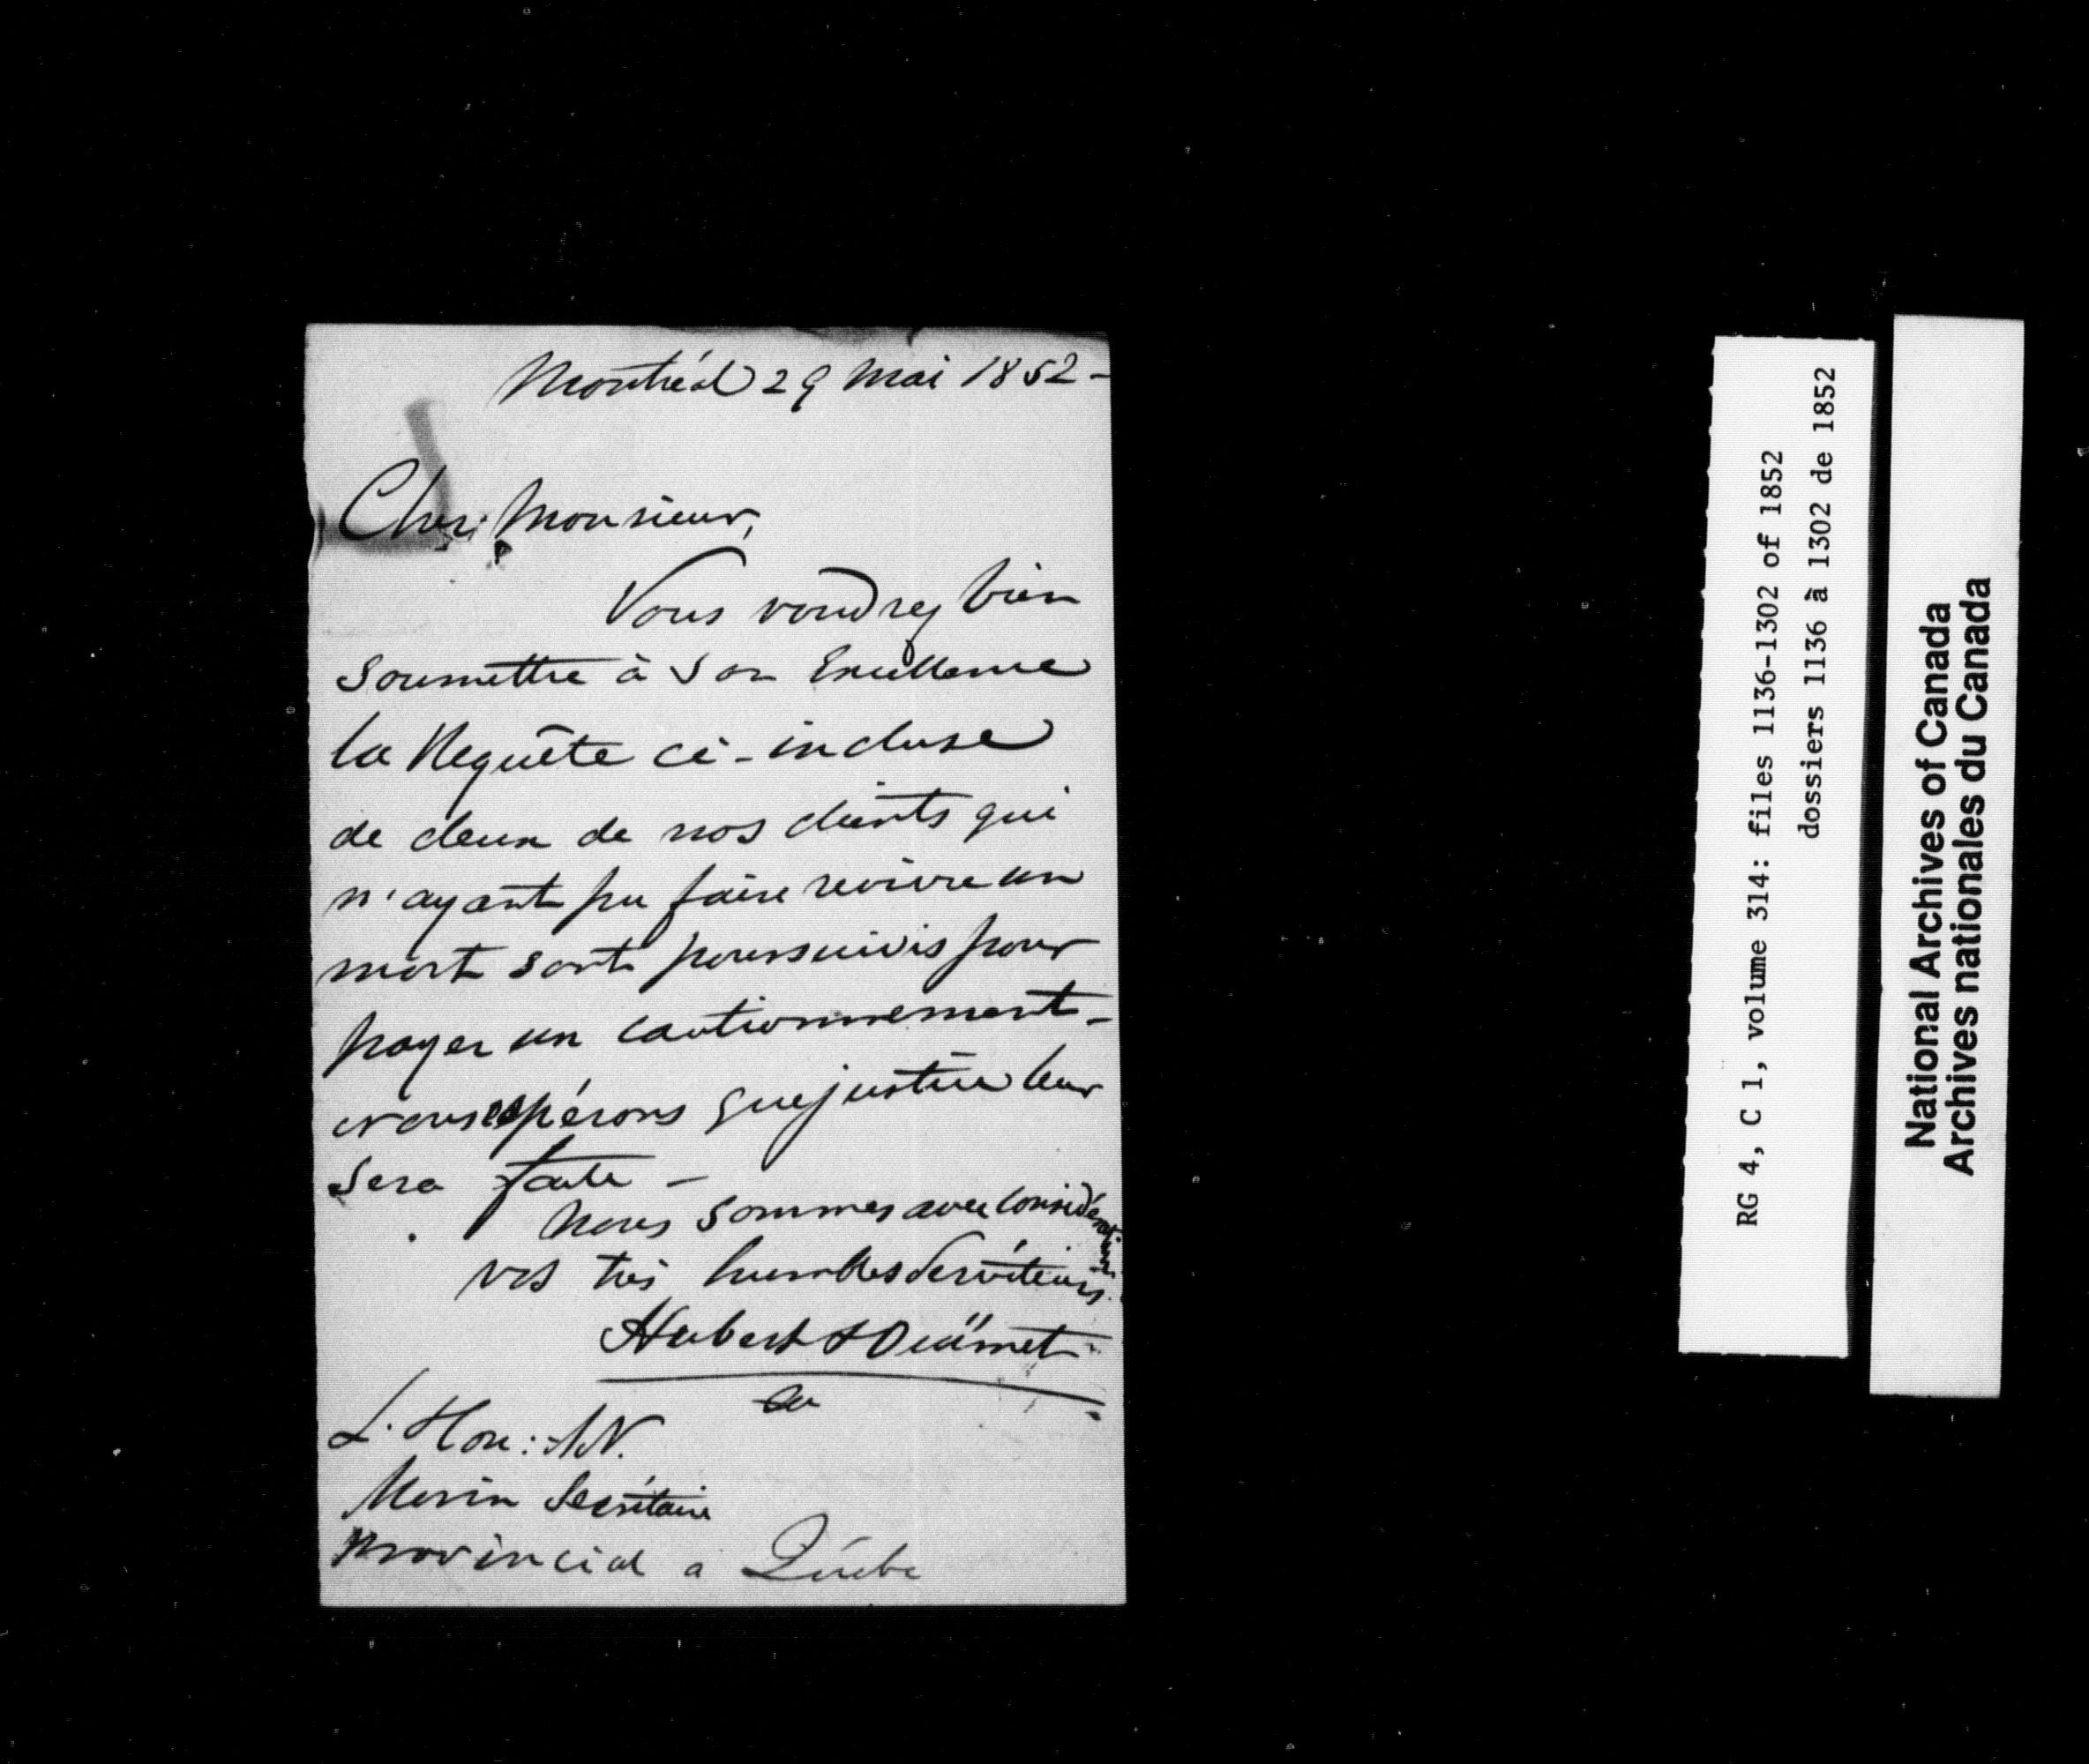 Montréal 29 Mai 1852 -
Cher Monsieur,
Vous voudrez bien
soumettre à Son Excellence
la Requête ci-incluse
de deux de nos clients qui
n'ayant pu faire revivre un
mort sont poursuivis pour
payer un cautionnement -
nous espérons que justice leur
sera faite -
Nous sommes avec considération
vos très humbles serviteurs.
Hubert & Ouimet
L. Hon: AN.
Morin Secrétaire
Provincial a Québec
RG 4, C 1, volume 314: files 1136-1302 of 1852
dossiers 1136 à 1302 de 1852
National Archives of Canada
Archives nationales du Canada